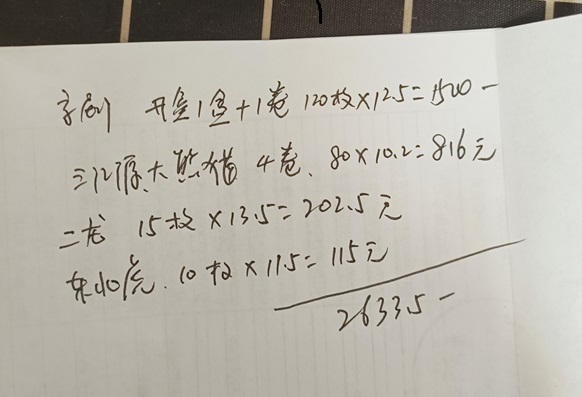 京剧 开盒1盒+1卷 120枚×12.5=1500-
三江源、大熊猫 4卷、80×10.2=816元
二龙 15枚×13.5=202.5元
东北虎、10枚×11.5=115元
2633.5-